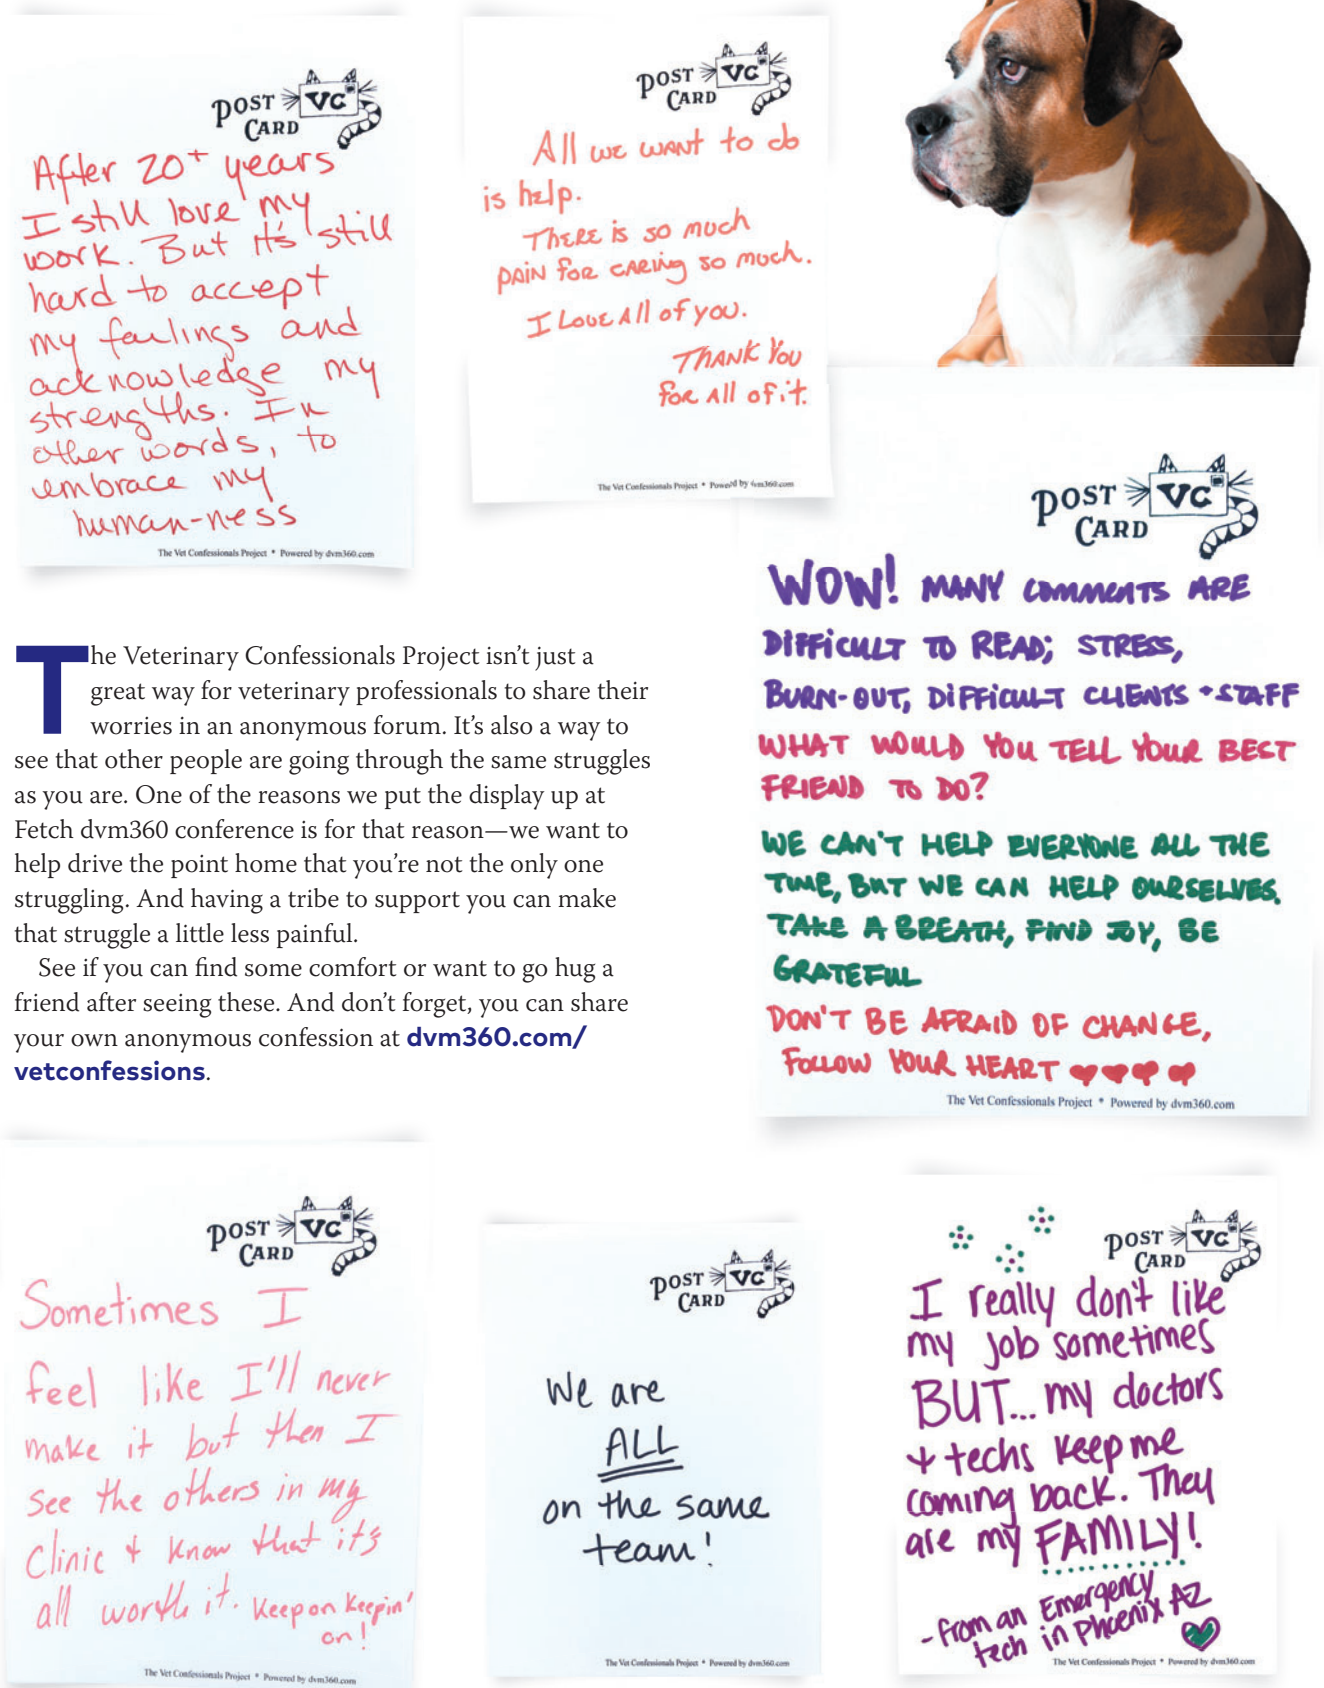 POST CARD VC
After 20+ years
I still love my
work. But it's still
hard to accept
my failings and
acknowledge my
strengths. In
other words, to
embrace my
human-ness
The Vet Confessionals Project * Powered by dvm360.com
POST CARD VC
All we want to do
is help.
There is so much
pain for caring so much.
I love all of you.
Thank you
for all of it.
The Vet Confessionals Project * Powered by dvm360.com
POST CARD VC
WOW! MANY COMMENTS ARE
DIFFICULT TO READ; STRESS,
BURN-OUT, DIFFICULT CLIENTS + STAFF
WHAT WOULD YOU TELL YOUR BEST
FRIEND TO DO?
WE CAN'T HELP EVERYONE ALL THE
TIME, BUT WE CAN HELP OURSELVES.
TAKE A BREATH, FIND JOY, BE
GRATEFUL
DON'T BE AFRAID OF CHANGE,
FOLLOW YOUR HEART
The Vet Confessionals Project * Powered by dvm360.com
The Veterinary Confessionals Project isn't just a
great way for veterinary professionals to share their
worries in an anonymous forum. It's also a way to
see that other people are going through the same struggles
as you are. One of the reasons we put the display up at
Fetch dvm360 conference is for that reason—we want to
help drive the point home that you're not the only one
struggling. And having a tribe to support you can make
that struggle a little less painful.
See if you can find some comfort or want to go hug a
friend after seeing these. And don't forget, you can share
your own anonymous confession at dvm360.com/
vetconfessions.
POST CARD VC
Sometimes I
feel like I'll never
make it but then I
see the others in my
clinic + know that it's
all worth it. Keep on keepin'
on!
The Vet Confessionals Project * Powered by dvm360.com
POST CARD VC
We are
ALL
on the same
team!
The Vet Confessionals Project * Powered by dvm360.com
POST CARD VC
I really don't like
my job sometimes
BUT... my doctors
+ techs keep me
coming back. They
are my FAMILY!
- from an Emergency
tech in Phoenix AZ
The Vet Confessionals Project * Powered by dvm360.com